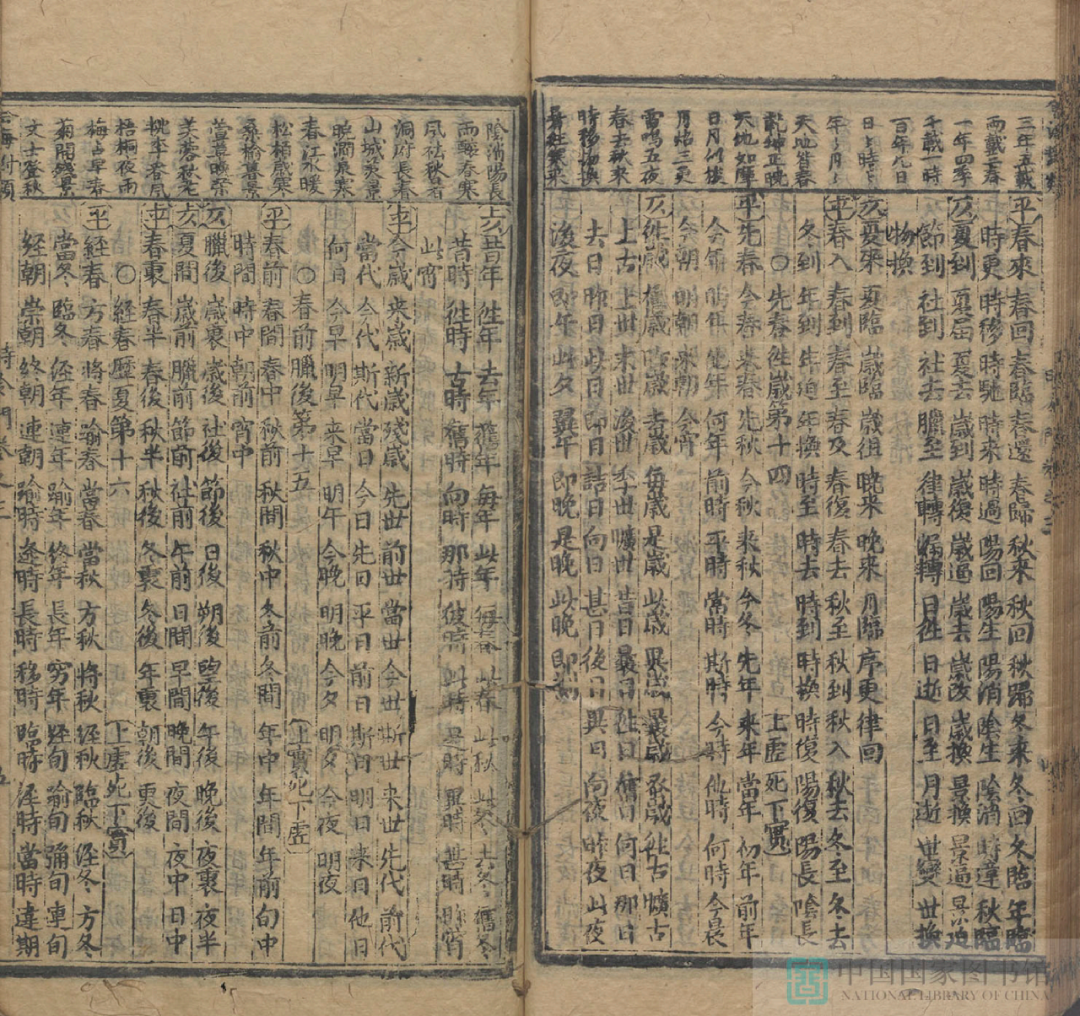 三年五載
兩載三春
一年四季
千載一時
百年几日
年々月々
天地皆春
乾坤正晚
日月似梭
月炤三更
雷鳴五夜
春去秋來
時移物換
暑往寒來
平 春來 春回 春臨 春還 春歸 秋來 秋回 秋歸 冬來 冬回 冬臨 年臨
時更 時移 時馳 時來 時過 陽回 陽生 陽消 陰生 陰消 時違 秋臨
仄 夏到 夏屆 夏去 歲到 歲復 歲過 歲去 歲改 歲換 景換 景過 景迫
節到 社到 社去 臘至 律轉 歸轉 日徃 日逝 日至 月逝 世變 世換
物換
仄 夏來 夏臨 歲臨 歲徂 晚來 晚來 月臨 序更 律回
平 春入 春到 春至 春及 春復 春去 秋至 秋到 秋入 秋去 冬至 冬去
冬到 年到 年迫 年換 時至 時去 時到 時換 時復 陽復 陽長 陰長
○ 先春徃歲第十四 上虛死下實
平 先春 今春 來春 先秋 今秋 來秋 今冬 先年 來年 當年 何年 前年
今年 昨年 先年 何年 前時 平時 常時 斯時 今時 他時 何時 今晨
今朝 明朝 來朝 今宵
仄 徃歲 舊歲 去歲 者歲 每歲 是歲 此歲 異歲 曩歲 徃古 曠古
上古 上世 末世 後世 季世 曠世 昔日 曩日 徃日 舊日 何日 那日
去日 昨日 此日 即日 詰日 向日 甚日 後日 異日 向夜 昨夜 此夜
後夜 即午 此夕 翼午 即晚 是晚 此晚 即刻
陰消陽長
雨歇春寒
風祛秋暑
洞府長春
山城炎景
曉澗泉寒
春江水暖
歲寒
桑榆暮景
萱草暖榮
芙蓉秋老
桃李春風
梧桐夜雨
梅占早春
菊開晚景
文士登秋
上仄 昔年 徃年 去年 舊年 每年 此年 每春 此春 此秋 此冬 去冬 舊冬
昔時 徃時 古時 舊時 向時 那時 彼時 此時 是時 異時 甚時 昨宵
此宵
平 今歲 來歲 新歲 殘歲 先世 前世 當世 今世 斯世 來世 先代 前代
當代 今代 斯代 當日 今日 先日 平日 前日 斯日 明日 來日 他日
何日 今早 明早 來早 明午 今晚 明晚 今夕 明夕 今夜 明夜
○ 春前臘後第十五 上實死下虛
平 春前 春間 春中 秋前 秋間 秋中 冬前 冬間 年中 年間 年前 旬中
時間 時中 朝前 宵中
仄 臘後 歲裏 歲後 社後 節後 日後 朔後 望後 午後 晚後 夜裏 夜半
上仄 夏間 歲前 臘前 節前 社前 午前 日間 早間 晚間 夜間 夜中 日中
平 春裏 春半 春後 秋半 秋後 冬裏 冬後 年裏 朝後 更後
○ 經春歷夏第十六 上虛死下實
平 經春 方春 將春 踰春 當春 當秋 方秋 將秋 經秋 臨秋 經冬 方冬
當冬 臨冬 經年 連年 踰年 終年 長年 窮年 經旬 踰旬 彌旬 連旬
經朝 崇朝 終朝 連朝 踰時 逢時 長時 移時 臨時 經時 當時 違期
中国国家图书馆
NATIONAL LIBRARY OF CHINA